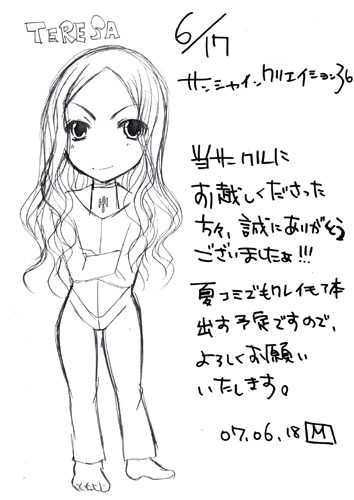 TERESA
6/17
サンシャインクリエイション36
当サークルに
お越しくださった
方々、誠にありがとう
ございましたぁ!!!
夏コミでもクレイモア本
出す予定ですので、
よろしくお願い
いたします。
07.06.18 M